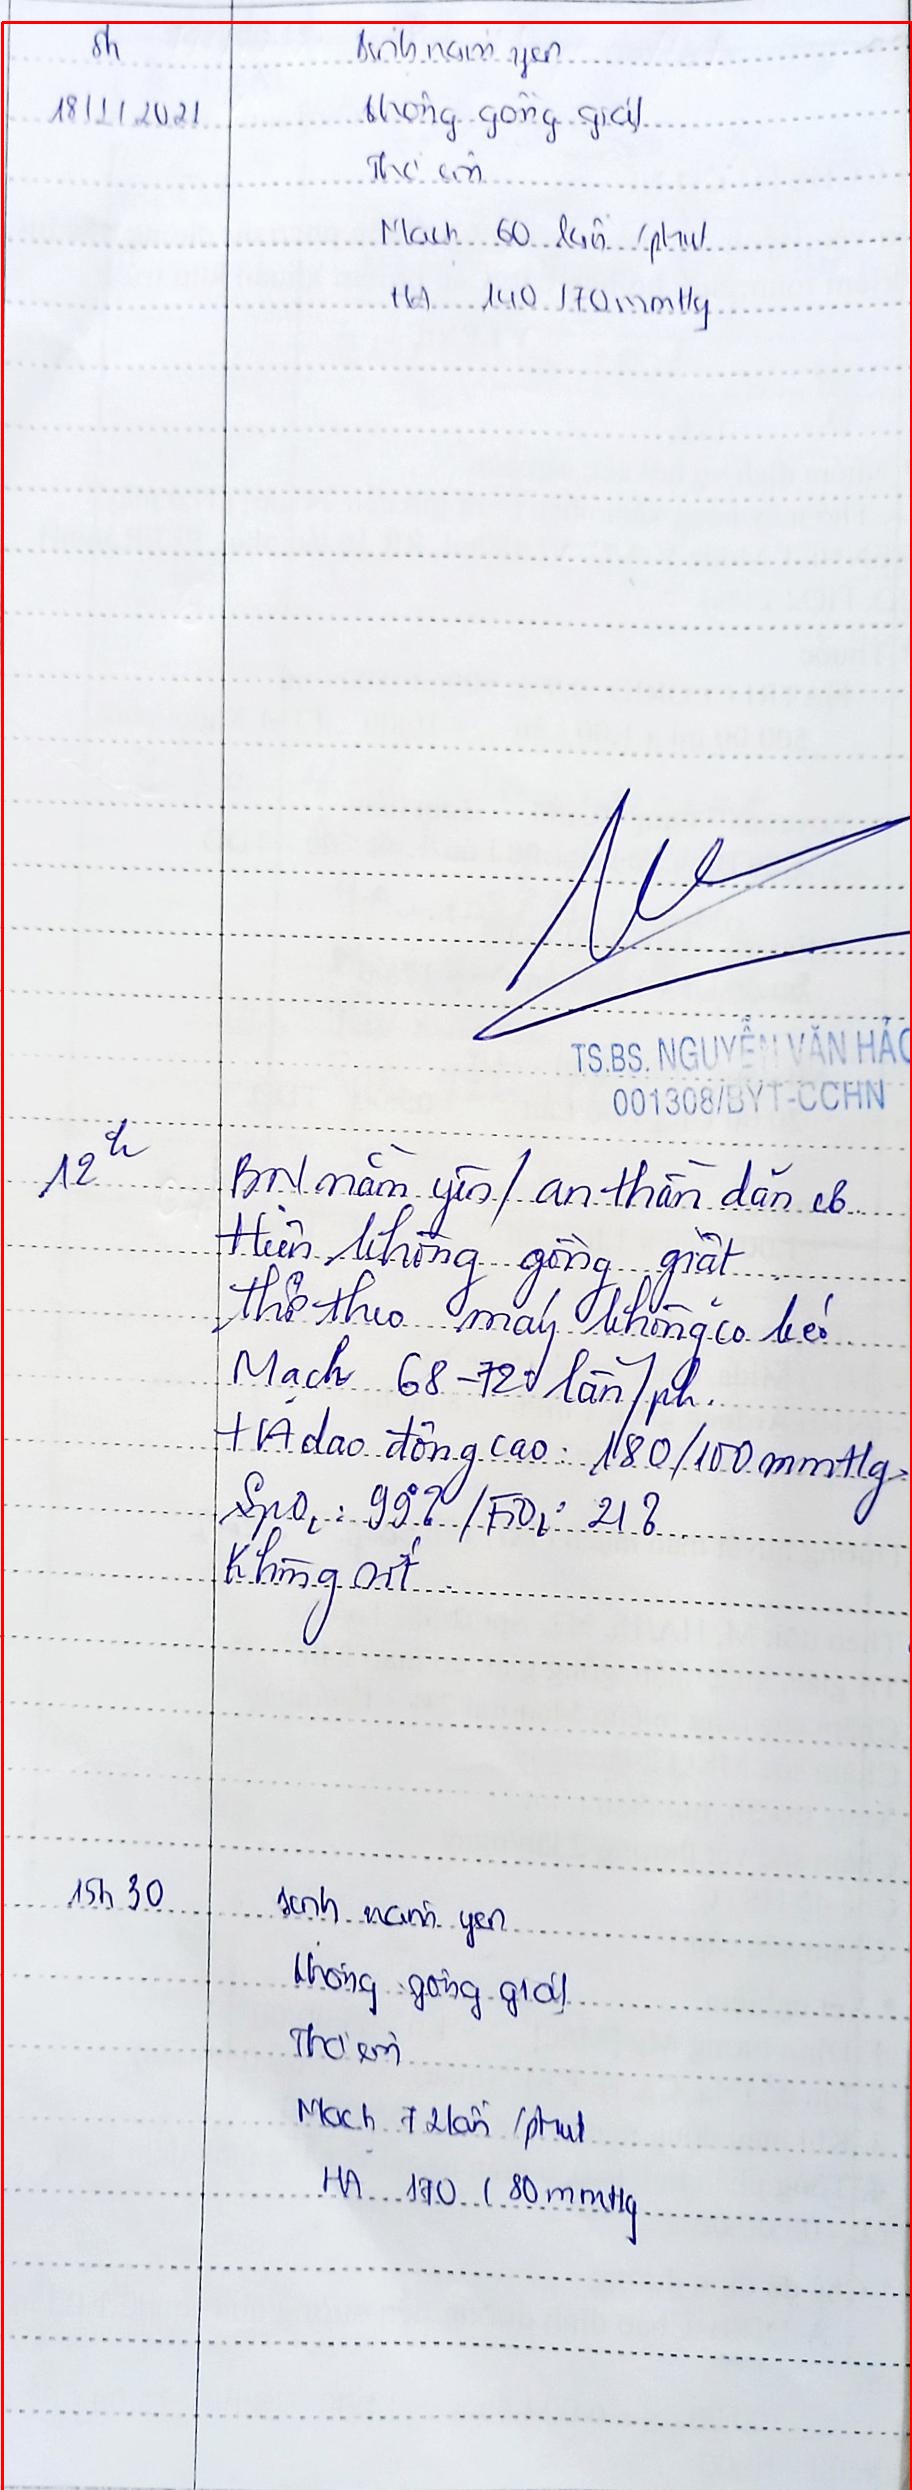 8h
18/1/2021
Bệnh nằm yên
Không gồng giật
Thở êm
Mạch 60 lần /phút
HA 140 / 70 mmHg
TS.BS. NGUYỄN VĂN HẢO
001308/BYT-CCHN
12h
BN nằm yên / an thần dãn cơ
Hiện không gồng giật
thở theo máy không co kéo
Mạch 68-72 lần/ph.
HA dao động cao: 180/100 mmHg
SpO2: 99% / FiO2: 21%
Không sốt
15h30
Bệnh nằm yên
Không gồng giật
Thở êm
Mạch 72 lần /phút
HA 170 / 80 mmHg